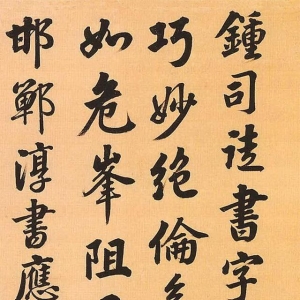 鍾司徒書字
巧妙絶倫
如危峯阻
邯鄲淳書應